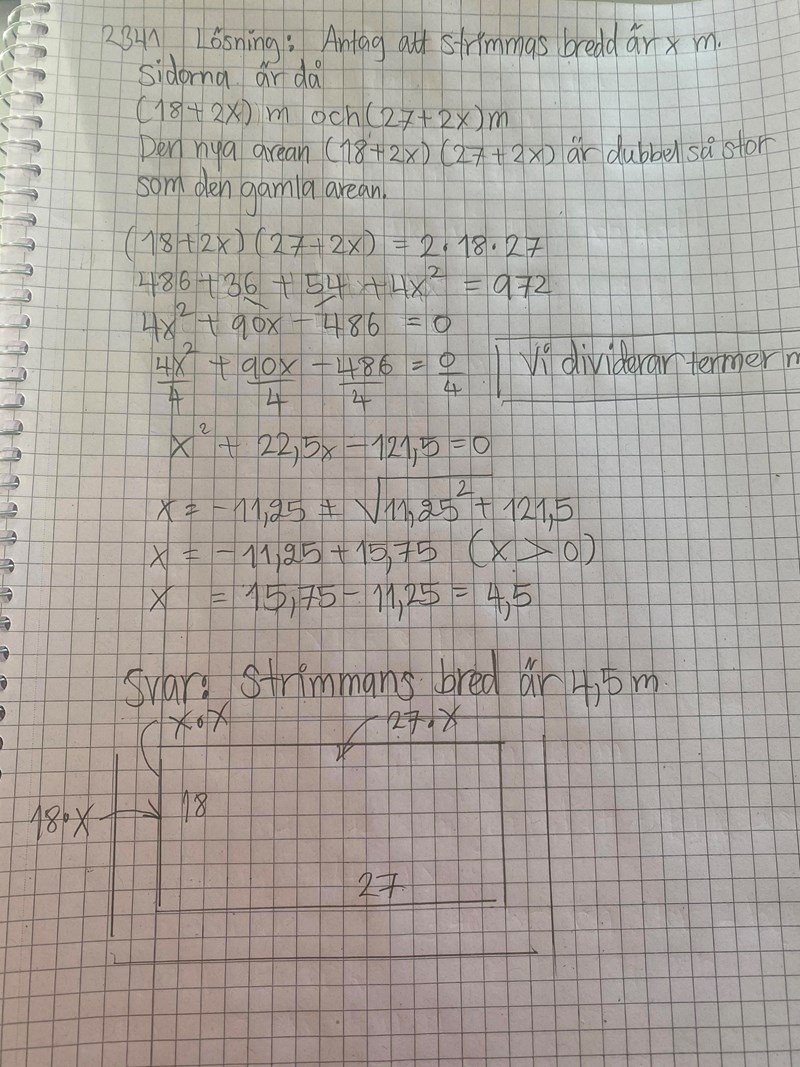 2341 Lösning: Antag att strimmas bredd är x m.
Sidorna är då
(18+2x) m och (27+2x) m
Den nya arean (18+2x) (27+2x) är dubbel så stor
som den gamla arean.
(18+2x) (27+2x) = 2·18·27
486+36 + 54 + 4x² = 972
4x² + 90x − 486 = 0
4x²/4 + 90x/4 − 486/4 = 0/4 Vi dividerar termer m
x² + 22,5x − 121,5 = 0
x = −11,25 ± √11,25² + 121,5
x = −11,25 + 15,75 (x > 0)
x = 15,75 − 11,25 = 4,5
Svar: Strimmans bred är 4,5 m.
x·x 27·x
18·x 18
27